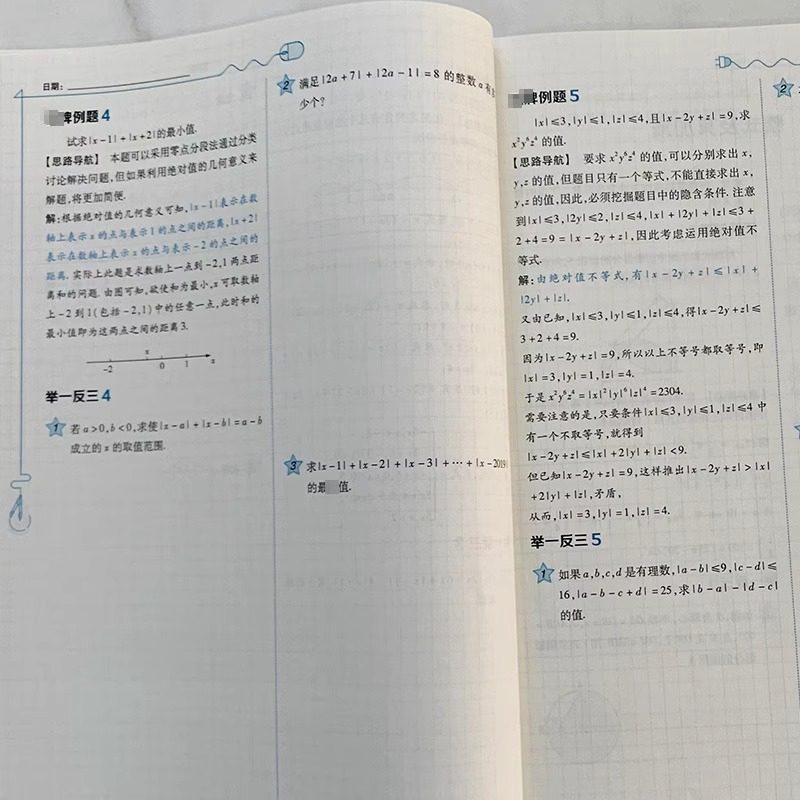 日期:
牌例题4
试求|x-1|+|x+2|的最小值.
【思路导航】 本题可以采用零点分段法通过分类
讨论解决问题,但如果利用绝对值的几何意义来
解题,将更加简便.
解:根据绝对值的几何意义可知,|x-1|表示在数
轴上表示x的点与表示1的点之间的距离,|x+2|
表示在数轴上表示x的点与表示-2的点之间的
距离.实际上此题是求数轴上一点到-2,1两点距
离和的问题.由图可知,欲使和为最小,x可取数轴
上-2到1(包括-2,1)中的任意一点,此时和的
最小值即为这两点之间的距离3.
x
-2 0 1 x
举一反三4
1 若a>0,b<0,求使|x-a|+|x-b|=a-b
成立的x的取值范围.
2 满足|2a+7|+|2a-1|=8的整数a有
少个?
3 求|x-1|+|x-2|+|x-3|+…+|x-2019|
的最 值.
牌例题5
|x|≤3,|y|≤1,|z|≤4,且|x-2y+z|=9,求
x²y⁶z⁴的值.
【思路导航】 要求x²y⁶z⁴的值,可以分别求出x,
y,z的值,但题目只有一个等式,不能直接求出x,
y,z的值,因此,必须挖掘题目中的隐含条件.注意
到|x|≤3,|2y|≤2,|z|≤4,|x|+|2y|+|z|≤3+
2+4=9=|x-2y+z|,因此考虑运用绝对值不
等式.
解:由绝对值不等式,有|x-2y+z|≤|x|+
|2y|+|z|.
又由已知,|x|≤3,|y|≤1,|z|≤4,得|x-2y+z|≤
3+2+4=9.
因为|x-2y+z|=9,所以以上不等号都取等号,即
|x|=3,|y|=1,|z|=4.
于是x²y⁶z⁴=|x|²|y|⁶|z|⁴=2304.
需要注意的是,只要条件|x|≤3,|y|≤1,|z|≤4中
有一个不取等号,就得到
|x-2y+z|≤|x|+2|y|+|z|<9.
但已知|x-2y+z|=9,这样推出|x-2y+z|>|x|
+2|y|+|z|,矛盾,
从而,|x|=3,|y|=1,|z|=4.
举一反三5
1 如果a,b,c,d是有理数,|a-b|≤9,|c-d|≤
16,|a-b-c+d|=25,求|b-a|-|d-c|
的值.
2